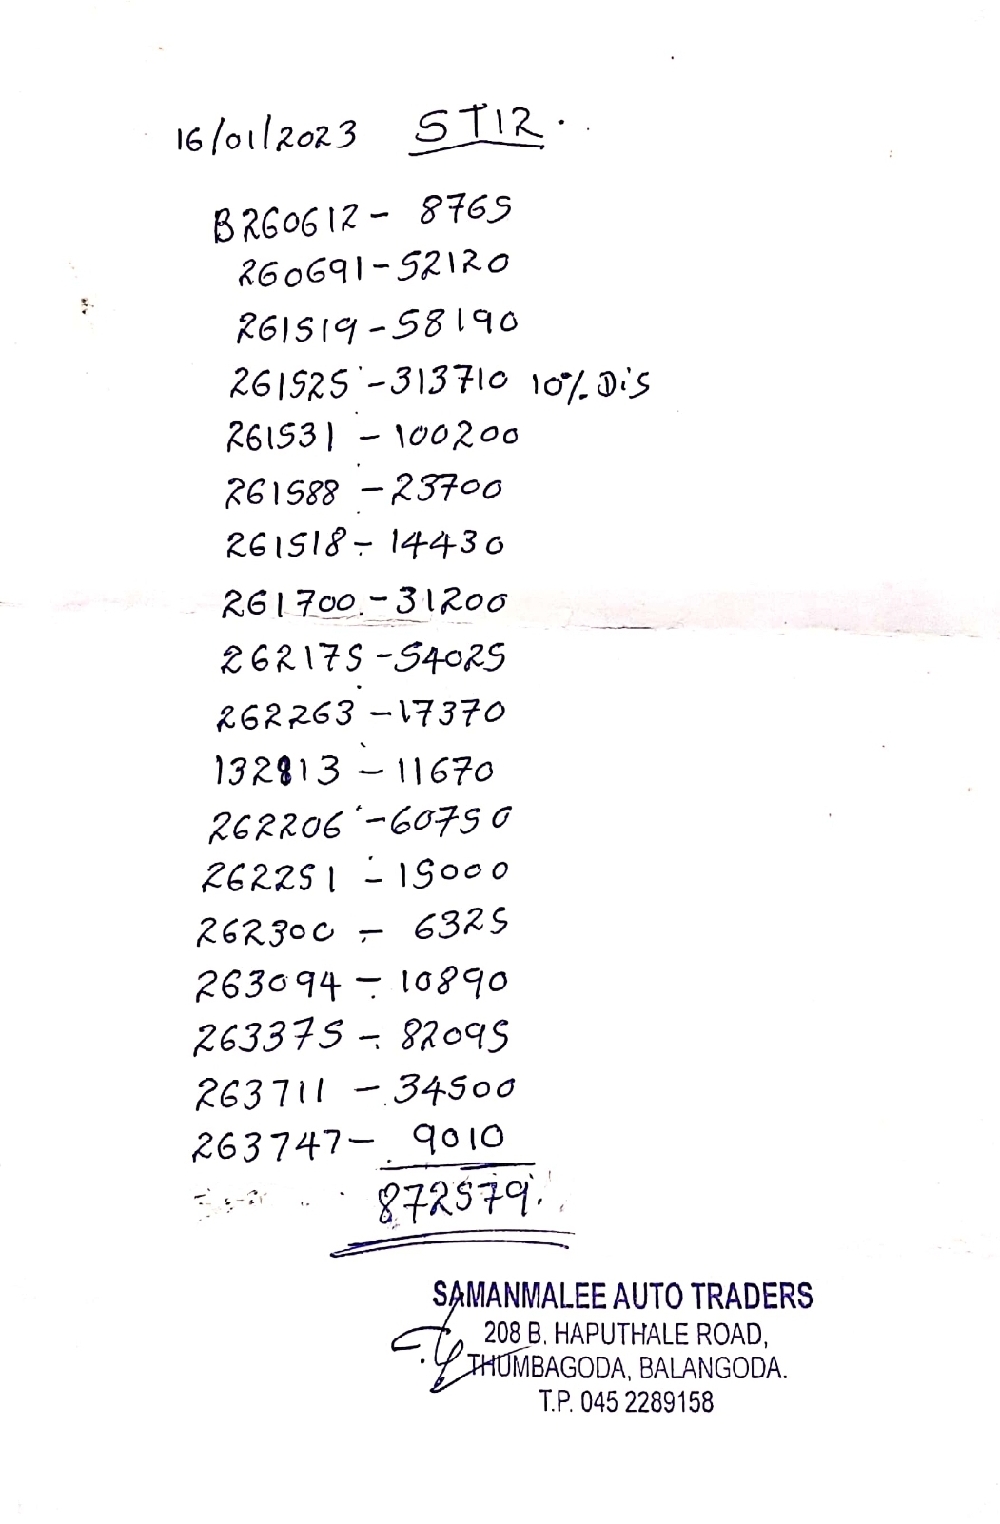 16/01/2023 STIR.
B260612 - 8765
260691 - 52120
261519 - 58190
261525 - 313710 10% Dis
261531 - 100200
261588 - 23700
261518 - 14430
261700 - 31200
262175 - 54025
262263 - 17370
132813 - 11670
262206 - 60750
262251 - 15000
262300 - 6325
263094 - 10890
263375 - 82095
263711 - 34500
263747 - 9010
872579.
SAMANMALEE AUTO TRADERS
208 B. HAPUTHALE ROAD,
THUMBAGODA, BALANGODA.
T.P. 045 2289158